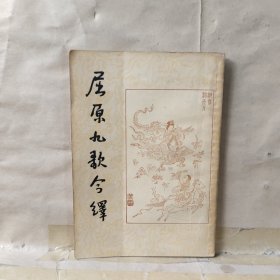 屈原九歌今繹